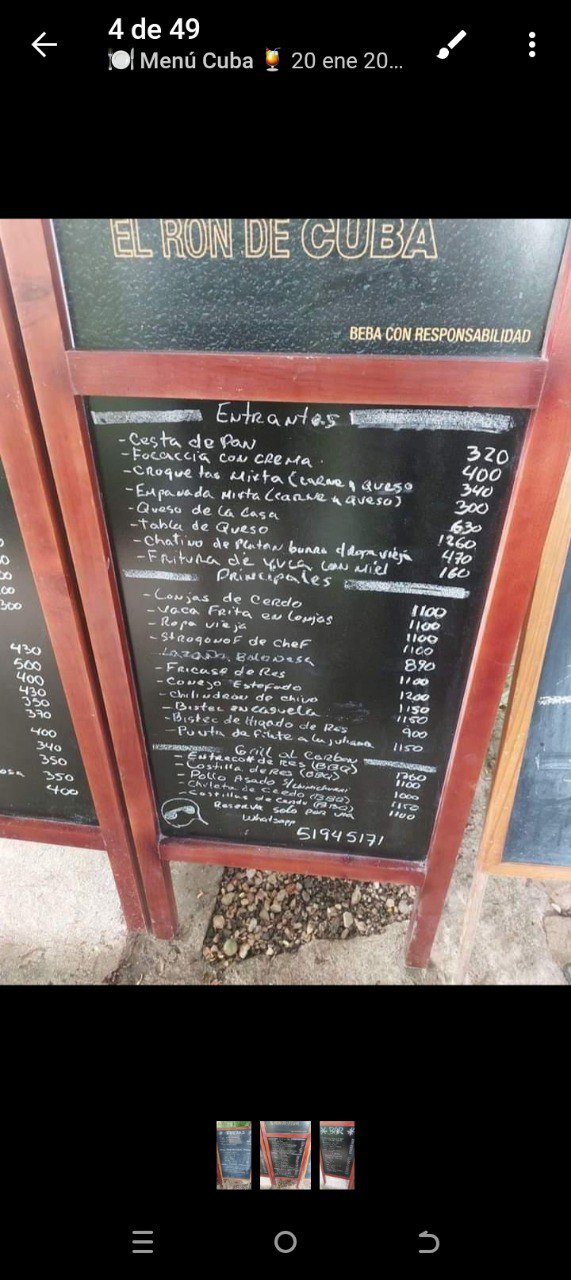 4 de 49
🍽️ Menú Cuba 🍹 20 ene 20...
EL RON DE CUBA
BEBA CON RESPONSABILIDAD
Entrantes
-Cesta de Pan 320
-Focaccia con crema. 400
-Croquetas Mixta (carne y queso 340
-Empanada Mixta (carne y queso) 300
-Queso de la Casa 630
-tabla de Queso 1260
-Chatino de platan burro d/ropa vieja 470
-Fritura de yuca con miel 160
Principales
-Lonjas de Cerdo 1100
-Vaca Frita en lonjas 1100
-Ropa vieja 1100
-Strogonof de chef 1100
Lazaña Boloñesa 890
-Fricase de Res 1100
-Conejo Estofado 1200
-Chilindron de chivo 1150
-Bistec en cazuela 1150
-Bistec de Higado de Res 900
-Punta de Filete a la juliana 1150
Grill al Carbon
-Entrecot de res (BBQ) 1260
-Costilla de Res (BBQ) 1100
-Pollo Asado S/chimichurri 1000
-Chuleta de Cerdo (BBQ) 1150
-Costillas de cerdo (BBQ) 1100
Reserva solo por via
Whatsapp
51945171
300
430
500
400
430
350
370
400
340
350
350
400